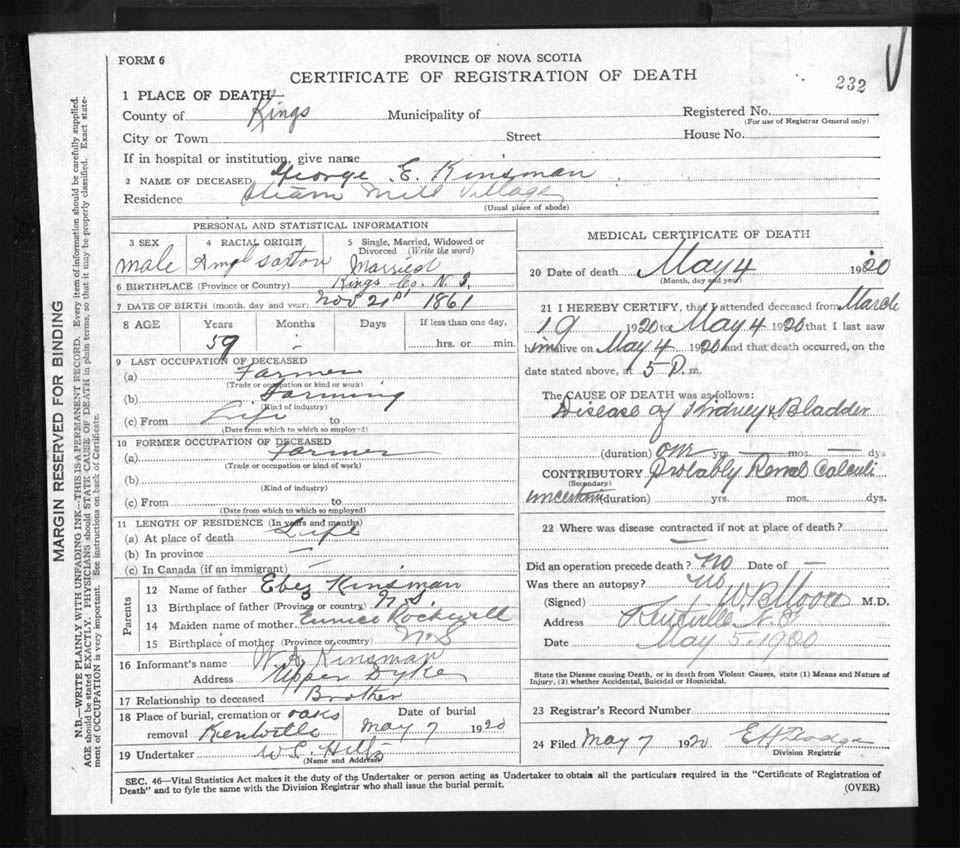 FORM 6
PROVINCE OF NOVA SCOTIA
CERTIFICATE OF REGISTRATION OF DEATH
232
1 PLACE OF DEATH
County of Kings Municipality of Registered No.
(For use of Registrar General only)
City or Town Street House No.
If in hospital or institution, give name
2 NAME OF DECEASED George E. Kinsman
Residence Steam Mill Village
(Usual place of abode)
PERSONAL AND STATISTICAL INFORMATION
3 SEX 4 RACIAL ORIGIN 5 Single, Married, Widowed or
Divorced (Write the word)
male Angl Saxton Married
6 BIRTHPLACE (Province or Country) Kings Co. N.S.
7 DATE OF BIRTH (month, day and year) Nov 21st 1861
8 AGE Years Months Days If less than one day,
59 - hrs. or min.
9 LAST OCCUPATION OF DECEASED
(a) Farmer
(Trade or occupation or kind or work)
(b) Farming
(Kind of industry)
(c) From Life to
(Date from which to which so employed)
10 FORMER OCCUPATION OF DECEASED
(a) Farmer
(Trade or occupation or kind of work)
(b)
(Kind of industry)
(c) From to
(Date from which to which so employed)
11 LENGTH OF RESIDENCE (In years and months)
(a) At place of death Life
(b) In province —
(c) In Canada (if an immigrant) —
Parents
12 Name of father Ebez Kinsman
13 Birthplace of father (Province or country) N.S.
14 Maiden name of mother Eunice Rockwell
15 Birthplace of mother (Province or country) N.S
16 Informant's name W. A. Kinsman
Address Upper Dyke
17 Relationship to deceased Brother
18 Place of burial, cremation or Oaks Date of burial
removal Kentville May 7 1920
19 Undertaker
(Name and Address)
MEDICAL CERTIFICATE OF DEATH
20 Date of death May 4 1920
(Month, day and year)
21 I HEREBY CERTIFY, that I attended deceased from March
19 1920 to May 4 1920 that I last saw
him alive on May 4 1920 and that death occurred, on the
date stated above, at 5 P. m.
The CAUSE OF DEATH was as follows:
Disease of Kidney & Bladder
(duration) one yrs. — mos. — dys
CONTRIBUTORY Probably Renal Calculi
(Secondary)
uncertain (duration) yrs. mos. dys.
22 Where was disease contracted if not at place of death?
—
Did an operation precede death? No Date of —
Was there an autopsy? No
(Signed) W.B. Moore M.D.
Address Kentville N.S.
Date May 5. 1920
State the Disease causing Death, or in death from Violent Causes, state (1) Means and Nature of
Injury, (2) whether Accidental, Suicidal or Homicidal.
23 Registrar's Record Number
24 Filed May 7 1920
Division Registrar
SEC. 46—Vital Statistics Act makes it the duty of the Undertaker or person acting as Undertaker to obtain all the particulars required in the "Certificate of Registration of
Death" and to fyle the same with the Division Registrar who shall issue the burial permit.
(OVER)
MARGIN RESERVED FOR BINDING
N.B.—WRITE PLAINLY WITH UNFADING INK—THIS IS A PERMANENT RECORD. Every item of information should be carefully supplied.
AGE should be stated EXACTLY. PHYSICIANS should STATE CAUSE OF DEATH in plain terms, so that it may be properly classified. Exact state-
ment of OCCUPATION is very important. See instructions on back of Certificate.